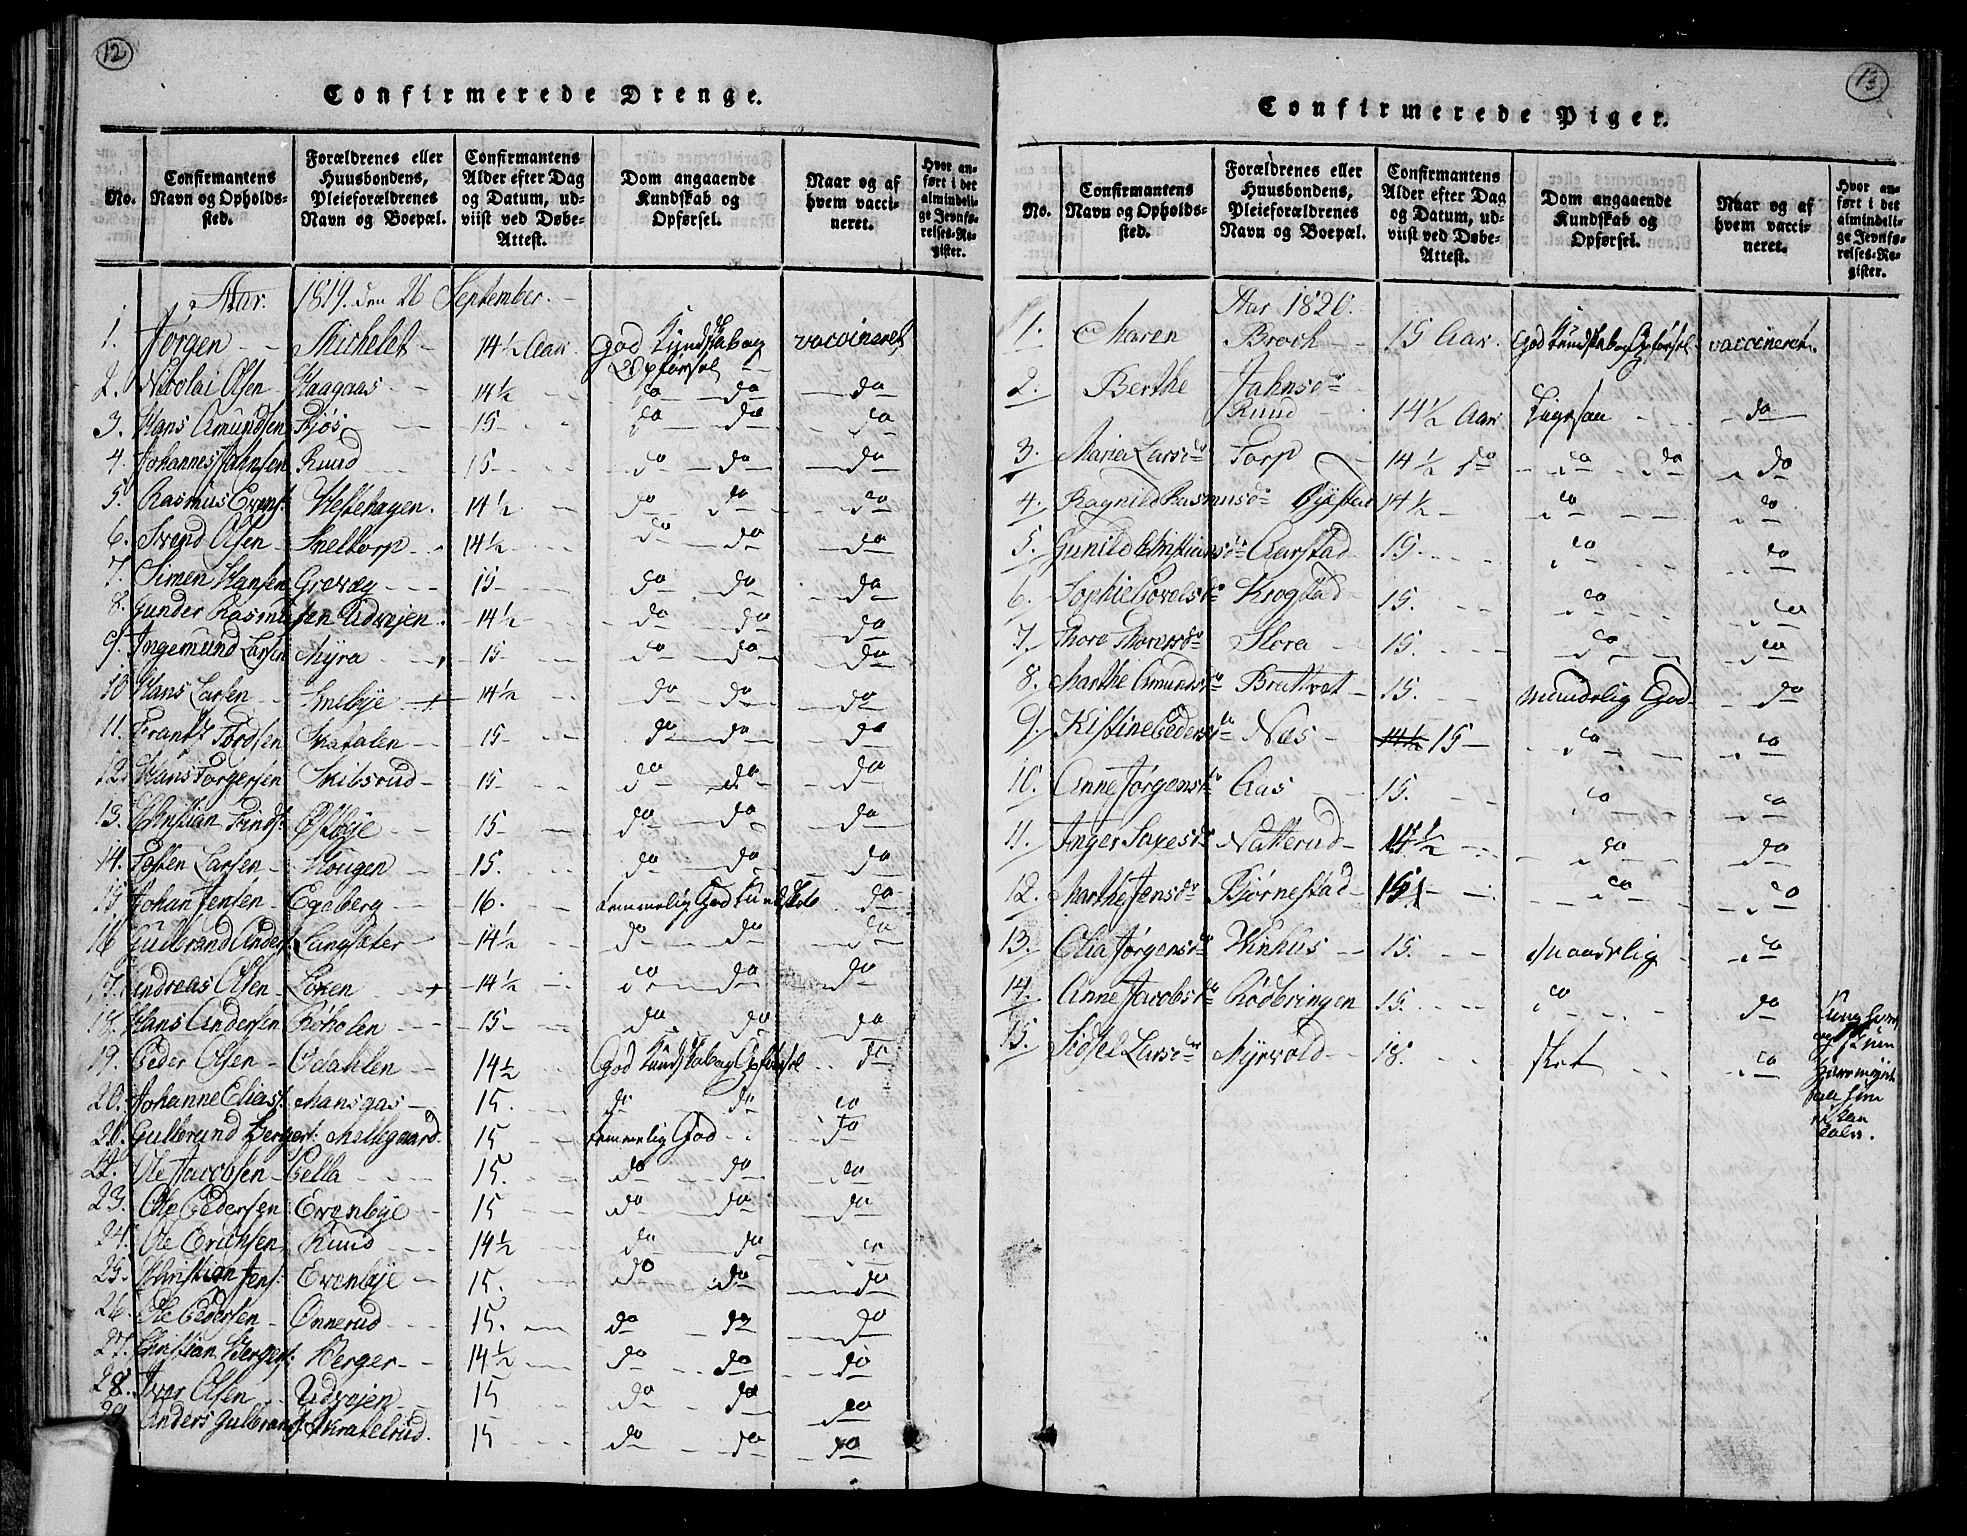 12
Confirmerede Drenge.
No. Confirmantens Navn og Opholdssted. Forældrenes eller Huusbondens, Pleieforældrenes Navn og Boepæl. Confirmantens Alder efter Dag og Datum, udviist ved Døbe-Attest. Dom angaaende Kundskab og Opførsel. Naar og af hvem vaccineret. Hvor anført i det almindelige Jevnførelses-Register.
Aar. 1819. den 26 September.
1. Jørgen Michelet 14½ Aar God Kundskab og Opførsel vaccineret
2. Nicolai Olsen Haagaas 14½ do do do
3. Hans Amundsen Fjøs 15 do do do
4. Johannes Jahnsen Ruud 15 do do do
5. Rasmus Evens: Hestehagen. 14½ do do do
6. Svend Olsen Sneltorp 14½ do do do
7. Simen Hansen Grevæg 15 do do do
8. Gunder Rasmussen Udvejen. 14½ do do do
9. Ingemund Larsen Myra 15 do do do
10 Hans Larsen Snebye 14½ do do do
11. Frantz Tordsen Skatalen 15 do do do
12. Hans Torgersen Skibsrud 15 do do do
13. Christian Finds: Østbye 15 do do do
14. Larsen Hougen 15. do do do
15 Johan Jensen Egeberg 16. temmelig God Kundskab do
16 Gulbrand Anders: Langsæter 14½ do do do
17. Andreas Olsen Løken 14½ do do do
18. Hans Andersen Røholen 15 do do do
19. Peder Olsen Odahlen 14½ God Kundskab og Opførsel do
20. Johanne Elias: Mansgas 15. do do do
21. Gulbrand Berger: Mellegaard. 15 temmelig God do
22. Ole Jacobsen Pella 15. do do do
23. Ole Pedersen Evenbye 15 do do do
24. Ole Erichsen Ruud 14½ do do do
25. Christian Jens: Evenbye 15. do do do
26. Ole Pedersen Onnerud 15. do do do
27. Christian Berger: Berger 14½ do do do
28. Iver Olsen Udvejen 15 do do do
29. Anders Gulbrands: 15 do do do
13
Confirmerede Piger.
No. Confirmantens Navn og Opholdssted. Forældrenes eller Huusbondens, Pleieforældrenes Navn og Boepæl. Confirmantens Alder efter Dag og Datum, udviist ved Døbe-Attest. Dom angaaende Kundskab og Opførsel. Naar og af hvem vaccineret. Hvor anført i det almindelige Jevnførelses-Register.
Aar 1820.
1. Maren Broch 15 Aar. God Kundskab og Opførsel vaccineret.
2. Berthe Jahnsdr Ruud 14½ Aar Ligesaa do
3. Maria Larsdr Torp 14½ do do do do
4. Ragnild Rasmusdr Bÿstad 14½ do do
5. Gunild Christiansdr Aarstad 15 do do
6. Sophie Povelsdr Krogstad 15. do do
7. Thore Thoresdr Flora 15. do do
8. Marthe Amundsdr Brattvet 15. Maadelig God do
9. Kistine Pedersdr Næs 14½ 15 do do
10. Anne Jørgensdr Aas 15. do do
11. Inger Saxesdr Natterud 14½ do do
12. Marthe Jensdr Bjørnestad 15 do do
13. Olia Jørgensdr Vinhus 15. Maadelig do
14. Anne Jacobsdr Rødbringen 15. do do
15. Sidsel Larsdr Myrvold 18. slet do